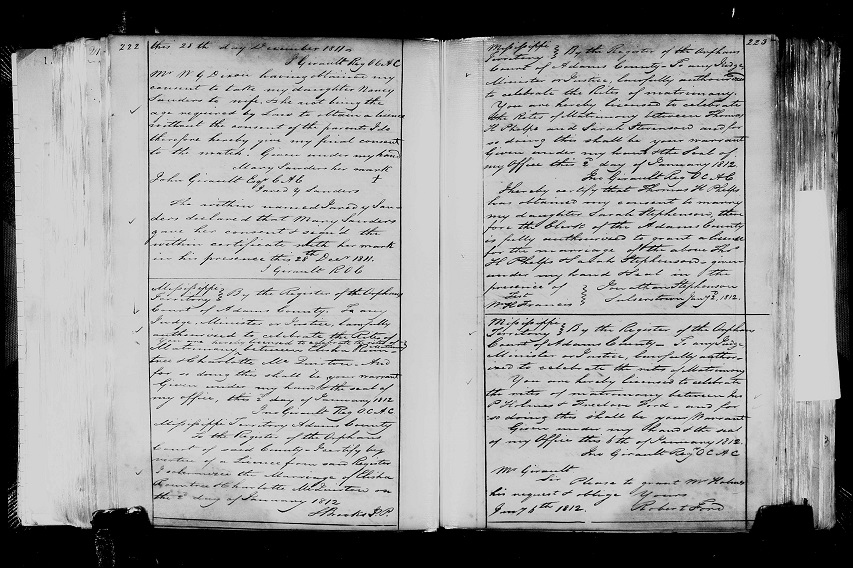 222
this 28th day December 1811
J Girault Reg O C A C
Mr W G Dixon having Obtain'd my
consent to take my daughter Nancy
Sanders to wife, & she not being the
age required by Law to obtain a license
without the consent of the parents I do
therefore hereby give my final consent
to the match. Given under my hand
Mary Sanders her mark
John Girault Esqr C A C +
Jared Y Sanders
The within named Jared y San-
ders declared that Mary Sanders
gave her consent & sign'd the
within certificate with her mark
in his presence this 28th Decr 1811.
J Girault R O C
Mississippi
Territory } By the Register of the Orphans
Court of Adams County. To any
Judge, Minister or Justice, lawfully
authorised to celebrate the Rites of
Matrimony between Elisha
& Charlotte And
for so doing this shall be your warrant
Given under my hand & the seal of
my office, this 2d day of January 1812
Jno Girault Reg O C A C
Mississippi Territory Adams County
To the Register of the Orphans
Court of said County I certify by
virtue of a License from said Register
I solemnized the marriage of Elisha
& Charlotte on
the 2d day of January 1812
J.P.
223
Mississippi
Territory } By the Register of the Orphans
Court of Adams County - To any Judge,
Minister or Justice, lawfully authorised
to celebrate the Rites of matrimony.
You are hereby licensed to celebrate
the Rites of Matrimony between Thomas
H Phelps and Sarah Stevenson and for
so doing this shall be your warrant
Given under my hand & the Seal of
my Office this 2d day of January 1812
Jno Girault Reg O C A C
I hereby certify that Thomas H Phelps
has obtained my consent to marry
my daughter Sarah Stephenson, there
fore the Clerk of the Adams County
is fully authorised to grant a license
for the marriage of the above Ts
H Phelps & Sarah Stephenson, given
under my hand & seal in the
presence of } Jonathan Stephenson
Test
Wm Francis } Jany 2, 1812.
Mississippi
Territory } By the Register of the Orphans
Court of Adams County - To any Judge
Minister or Justice, lawfully author-
ised to celebrate the rites of Matrimony
You are hereby licensed to celebrate
the rites of matrimony between Jno
P Holmes & Ford - and for
so doing this shall be your Warrant
Given under my Hand & the seal
of my Office this 6th of January 1812.
Jno Girault Reg O C A C
Mr Girault
Sir Please to grant Mr Holmes
his request & oblige Yours
Jany 6th 1812. Robert Ford